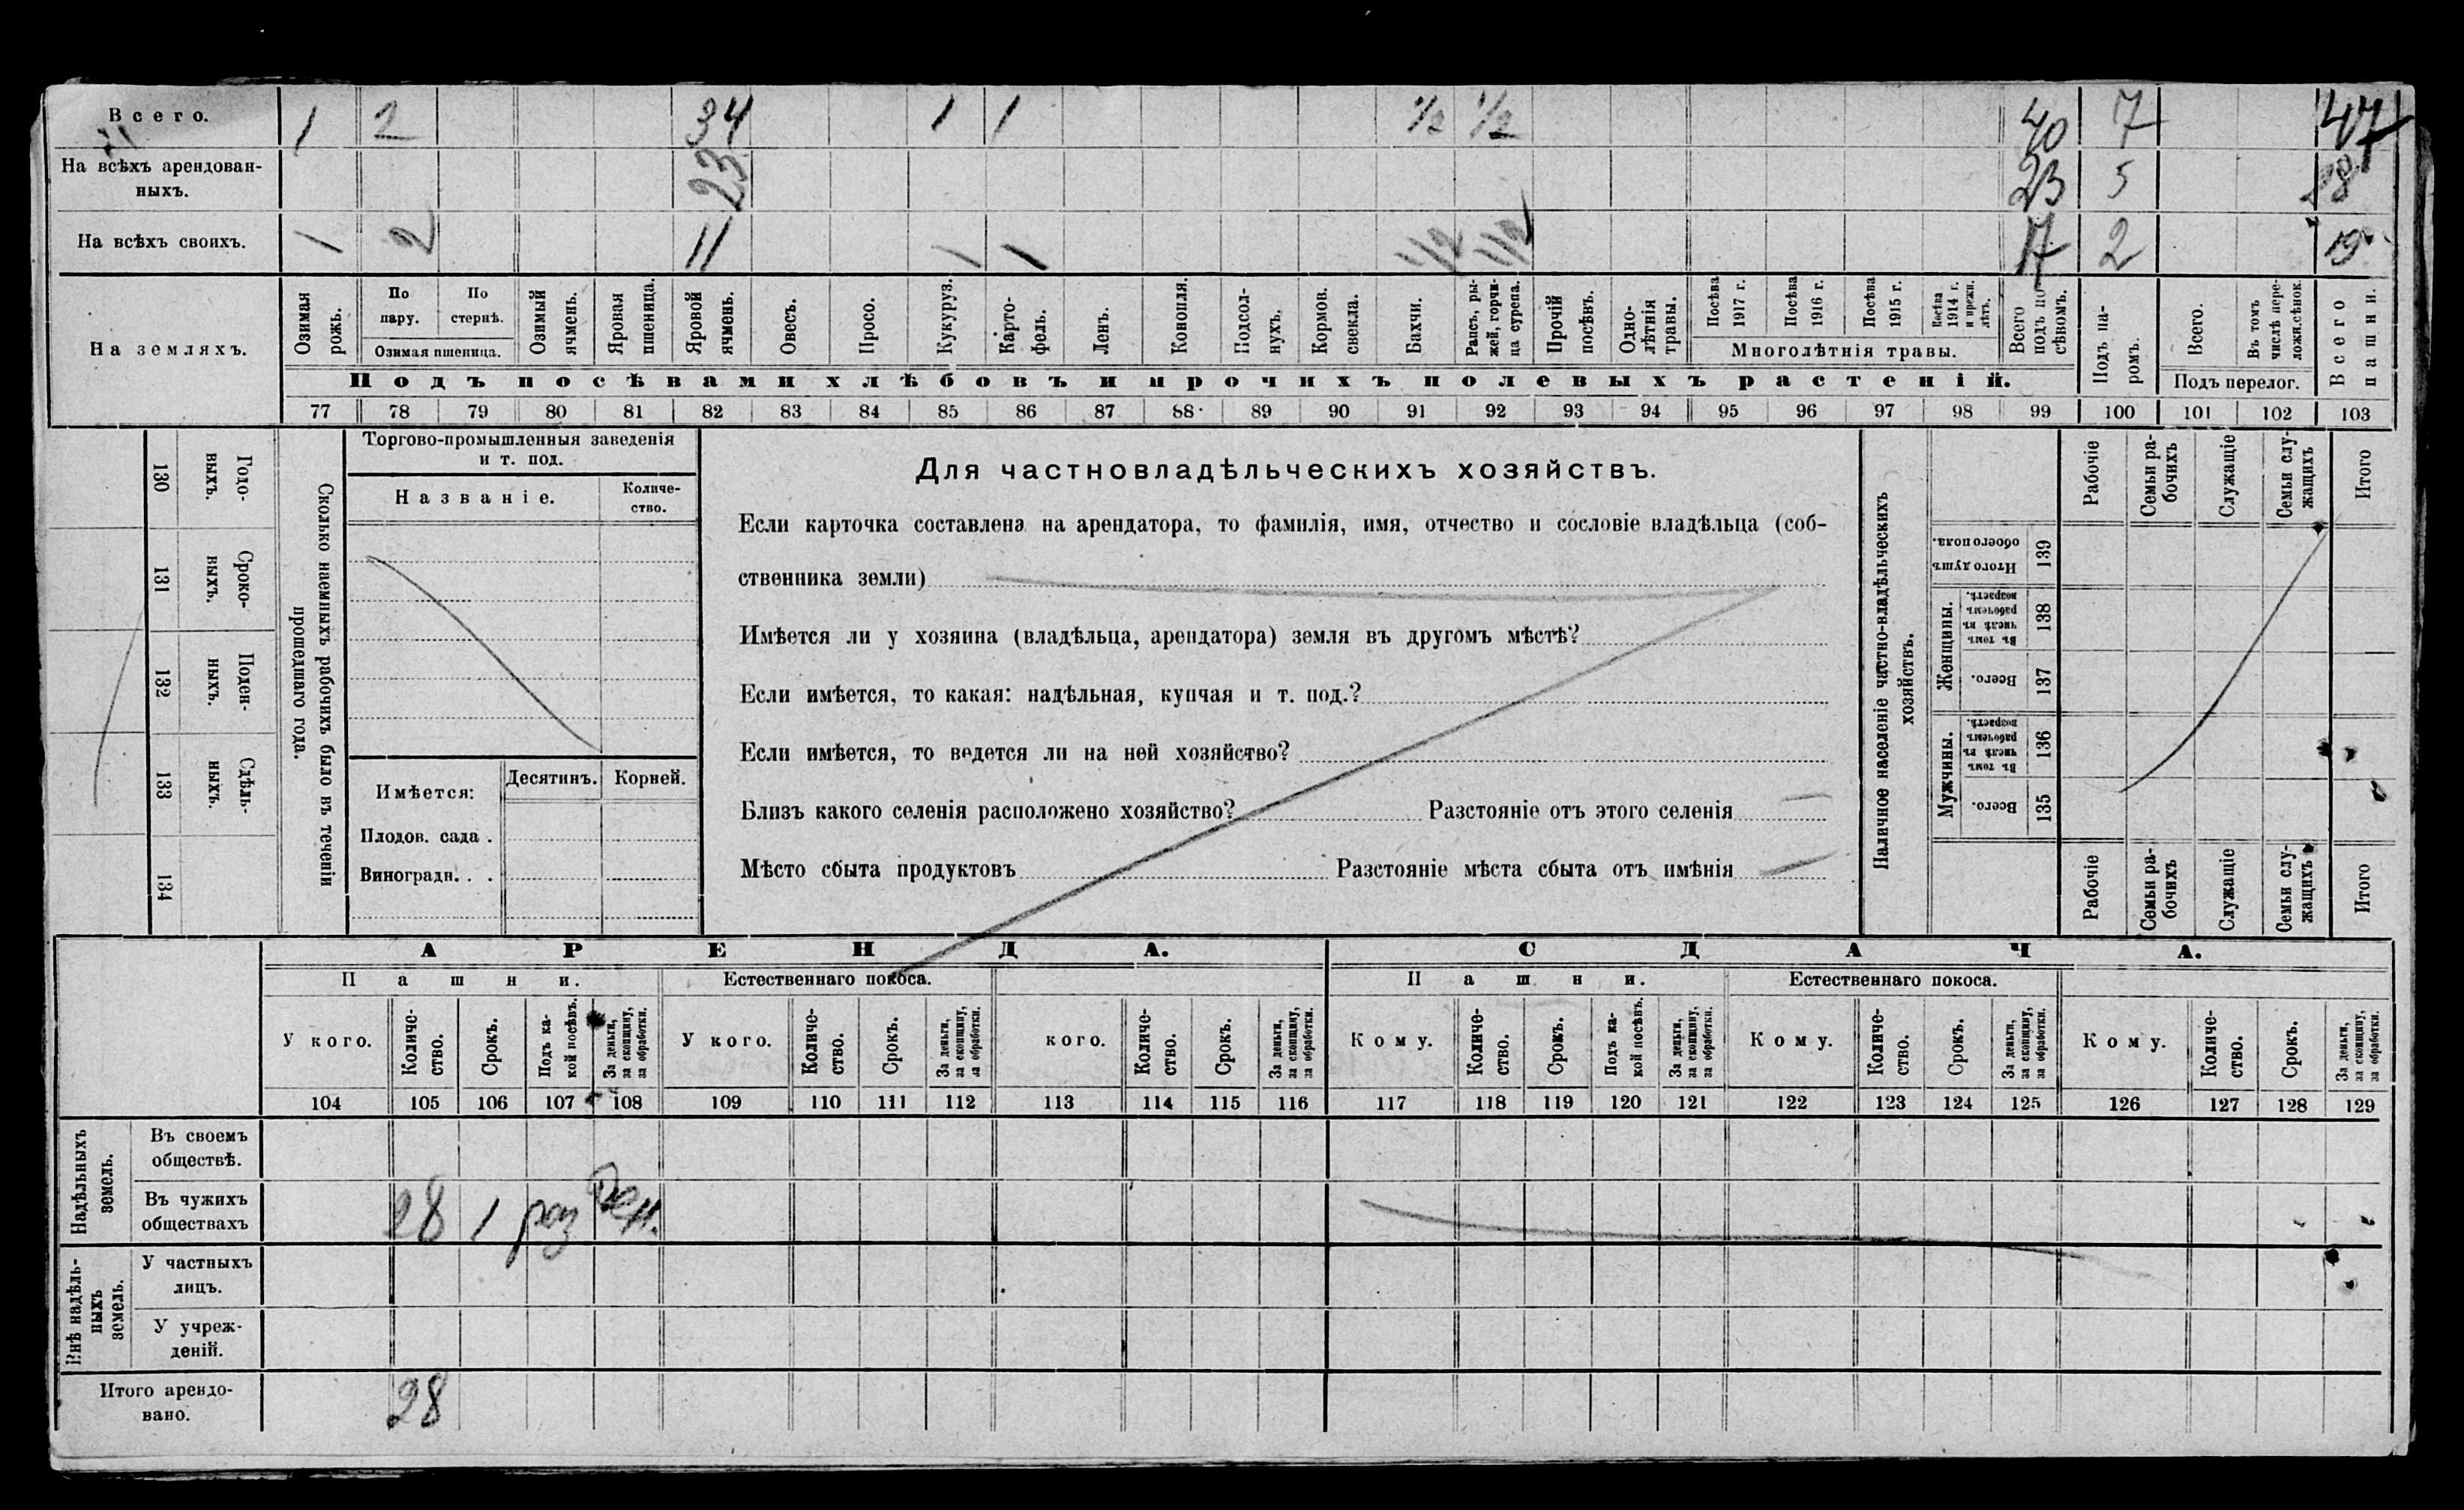 Всего. 1 2 34 1 1 1/2 1/2 40 7 47
На всѣхъ арендован-
ныхъ. 23 23 5 28
На всѣхъ своихъ. 1 2 11 1 1 1/2 1/2 17 2 19
На земляхъ.
Озимая рожь.
По пару.
По стернѣ.
Озимая пшеница.
Озимый ячмень.
Яровая пшеница.
Яровой ячмень.
Овесъ.
Просо.
Кукуруз.
Карто-
фель.
Ленъ.
Конопля.
Подсол-
нухъ.
Кормов. свекла.
Бахчи.
Рапсъ, ры-
жей, горчи-
ца сурепа.
Прочій посѣвъ.
Одно-
лѣтнія травы.
Посѣва 1917 г.
Посѣва 1916 г.
Посѣва 1915 г.
Посѣва 1914 г. и прежн. лѣтъ.
Многолѣтнія травы.
Всего подъ по-
сѣвомъ.
Подъ па-
ромъ.
Всего.
Въ томъ числѣ пере-
ложн. сѣнок.
Подъ перелог.
Всего пашни.
Подъ посѣвами хлѣбовъ и прочихъ полевыхъ растеній.
77 78 79 80 81 82 83 84 85 86 87 88 89 90 91 92 93 94 95 96 97 98 99 100 101 102 103
130 Годо-
выхъ.
131 Сроко-
ныхъ.
132 Поден-
ныхъ.
133 Сдѣль-
ныхъ.
134
Сколько наемныхъ рабочихъ было въ теченіи
прошедшаго года.
Торгово-промышленныя заведенія
и т. под.
Названіе.
Количе-
ство.
Имѣется: Десятинъ. Корней.
Плодов. сада .
Виноградн. . .
Для частновладѣльческихъ хозяйствъ.
Если карточка составлена на арендатора, то фамилія, имя, отчество и сословіе владѣльца (соб-
ственника земли)
Имѣется ли у хозяина (владѣльца, арендатора) земля въ другомъ мѣстѣ?
Если имѣется, то какая: надѣльная, купчая и т. под.?
Если имѣется, то ведется ли на ней хозяйство?
Близъ какого селенія расположено хозяйство? Разстояніе отъ этого селенія
Мѣсто сбыта продуктовъ Разстояніе мѣста сбыта отъ имѣнія
Наличное населеніе частно-владѣльческихъ
хозяйствъ.
Рабочіе
Семьи ра-
бочихъ
Служащіе
Семьи слу-
жащихъ
Итого
Итого душъ обоего пола. 139
Женщины.
Въ томъ числѣ въ рабочемъ возрастѣ. 138
Всего. 137
Мужчины.
Въ томъ числѣ въ рабочемъ возрастѣ. 136
Всего. 135
Рабочіе
Семьи ра-
бочихъ
Служащіе
Семьи слу-
жащихъ
Итого
АРЕНДА. СДАЧА.
Пашни. Естественнаго покоса. Пашни. Естественнаго покоса.
У кого.
Количе-
ство.
Срокъ.
Подъ ка-
кой посѣвъ.
За деньги, за скопщину, за обработки.
У кого.
Количе-
ство.
Срокъ.
За деньги, за скопщину, за обработки.
кого.
Количе-
ство.
Срокъ.
За деньги, за скопщину, за обработки.
Кому.
Количе-
ство.
Срокъ.
Подъ ка-
кой посѣвъ.
За деньги, за скопщину, за обработки.
Кому.
Количе-
ство.
Срокъ.
За деньги, за скопщину, за обработки.
Кому.
Количе-
ство.
Срокъ.
За деньги, за скопщину, за обработки.
104 105 106 107 108 109 110 111 112 113 114 115 116 117 118 119 120 121 122 123 124 125 126 127 128 129
Надѣльныхъ
земель.
Въ своемъ
обществѣ.
Въ чужихъ
обществахъ 28 1 раз Ден.
Внѣ надѣль-
ныхъ
земель.
У частныхъ
лицъ.
У учреж-
деній.
Итого арендо-
вано. 28